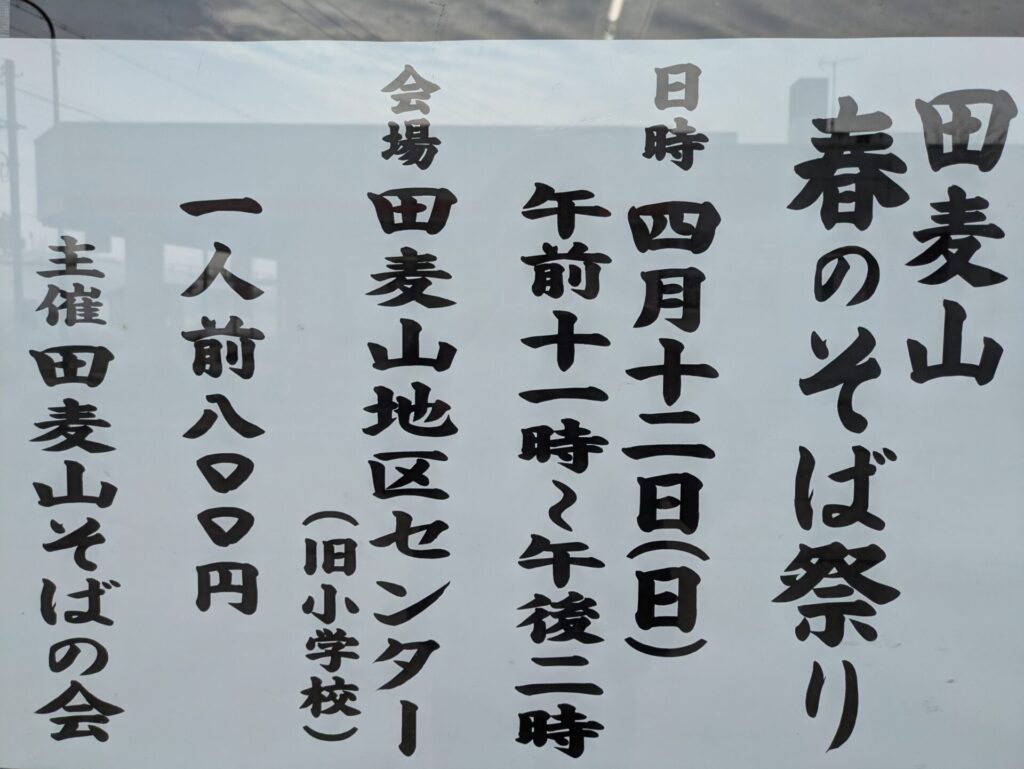 田麦山
春のそば祭り
日時 四月十二日(日)
午前十一時~午後二時
会場 田麦山地区センター
(旧小学校)
一人前八〇〇円
主催 田麦山そばの会